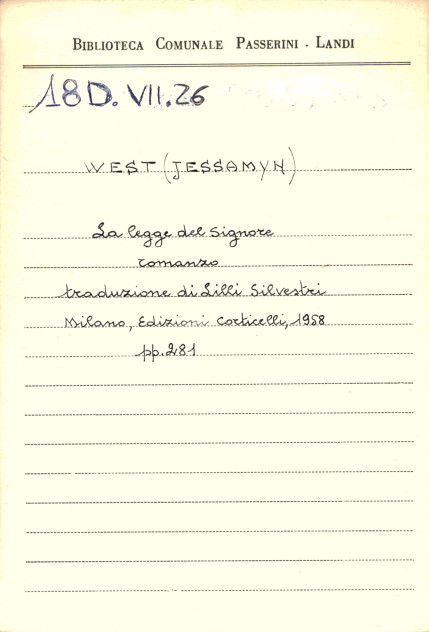 BIBLIOTECA COMUNALE PASSERINI - LANDI
18 D. VII. 26
WEST (JESSAMYN)
La legge del Signore
romanzo
traduzione di Lilli Silvestri
Milano, Edizioni Corticelli, 1958
pp. 281